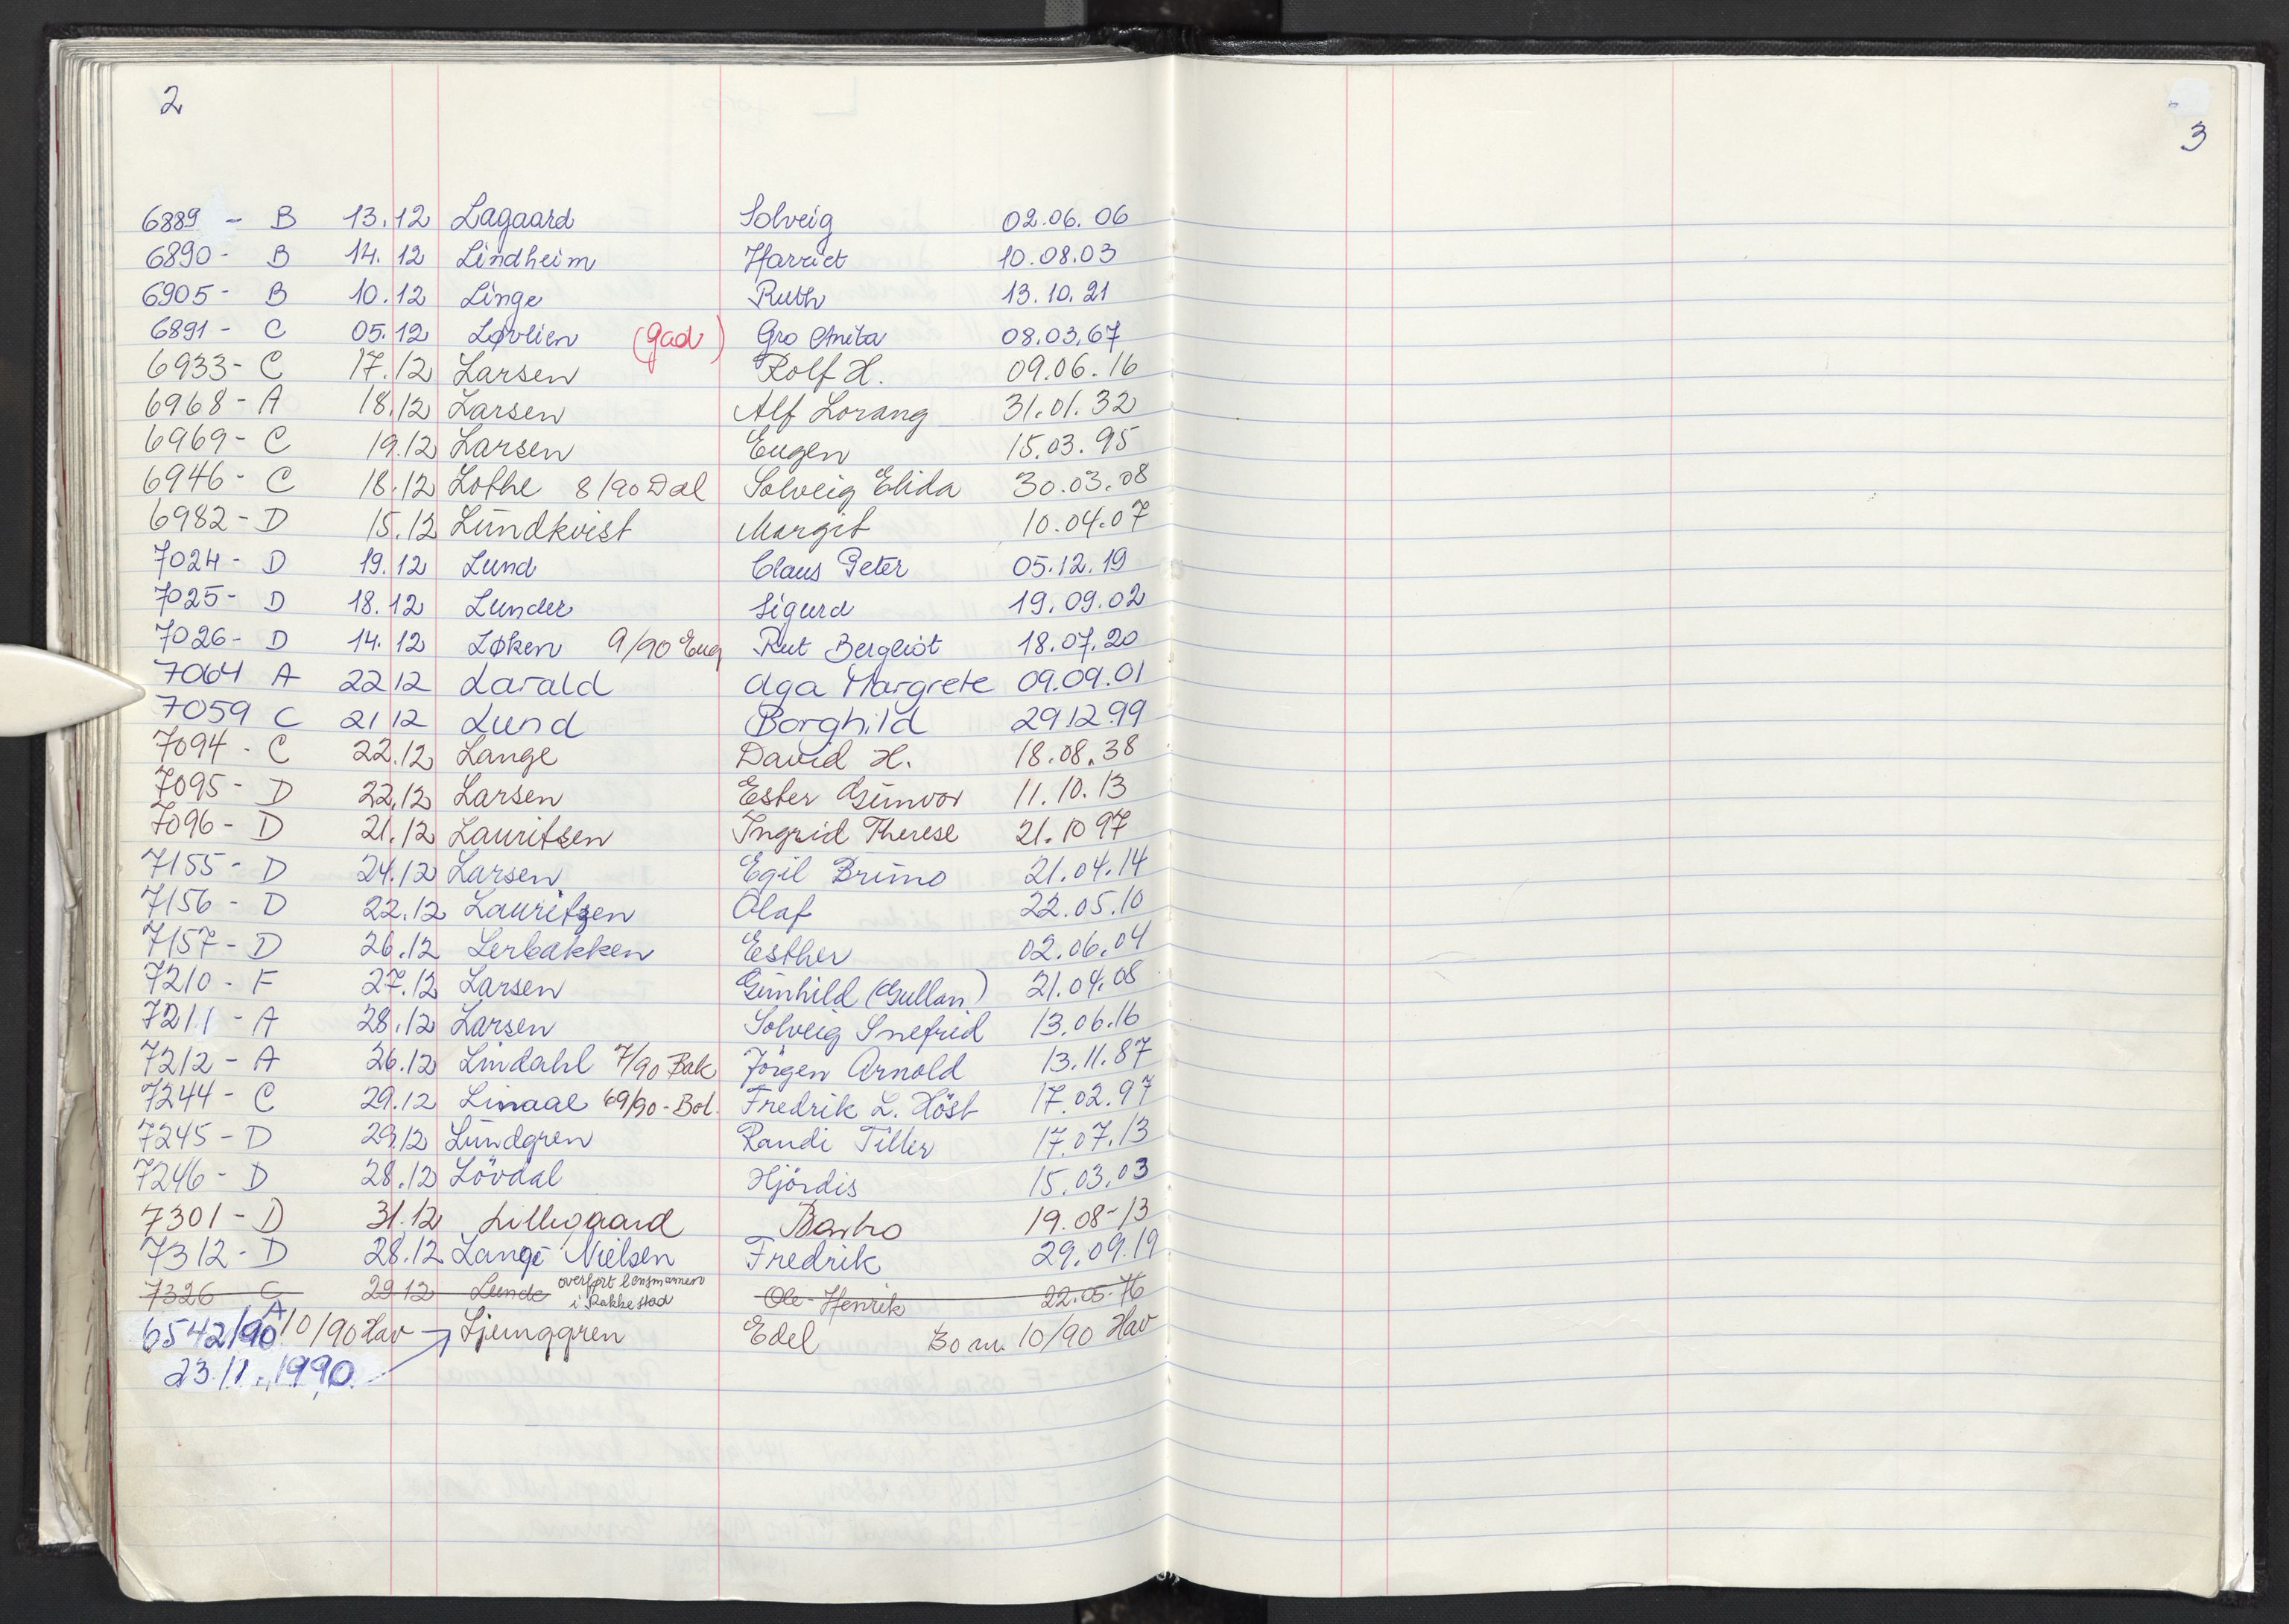 2
3
6889 - B 13.12 Lagaard Solveig 02.06.06
6890 - B 14.12 Lindheim Harriet 10.08.03
6905 - B 10.12 Linge Ruth 13.10.21
6891 - C 05.12 Løvlien (gad) Gro Anita 08.03.67
6933 - C 17.12 Larsen Rolf H. 09.06.16
6968 - A 18.12 Larsen Alf Lorang 31.01.32
6969 - C 19.12 Larsen Eugen 15.03.95
6946 - C 18.12 Lothe 8/90 Dal Solveig Elida 30.03.08
6982 - D 15.12 Lundkvist Margit 10.04.07
7024 - D 19.12 Lund Claus Peter 05.12.19
7025 - D 18.12 Lunder Sigurd 19.09.02
7026 - D 14.12 Løken 9/90 Eug Rut Bergliot 18.07.20
7064 A 22 12 Larald Aga Margrete 09.09.01
7059 C 21 12 Lund Borghild 29.12.99
7094 - C 22.12 Lange David H. 18.08.38
7095 - D 22.12 Larsen Ester Gunvor 11.10.13
7096 - D 21.12 Lauritsen Ingrid Therese 21.10 97
7155 - D 24.12 Larsen Egil Bruno 21.04.14
7156 - D 22.12 Lauritzen Olaf 22.05.10
7157 - D 26.12 Lerbakken Esther 02.06.04
7210 - F 27.12 Larsen Gunhild (Gullan) 21.04.08
7211 - A 28.12 Larsen Solveig Snefrid 13.06.16
7212 - A 26.12 Lindahl 7/90 Bak Jörgen Arnold 13.11.87
7244 - C 29.12 Linaae 69/90 - Bol. Fredrik L. Höst 17.02.97
7245 - D 29.12 Lundgren Randi Tiller 17.07.13
7246 - D 28.12 Lövdal Hjördis 15.03.03
7301 - D 31.12 Lillegaard 19.08-13
7312 - D 28.12 Lange Nielsen Fredrik 29.09.19
7326 C 29 12 Lunde overført lensmannen i Rakkestad Ole-Henrik 22.05.76
6542/90 A 10/90 Hav → Ljunggren Edel Bo nr. 10/90 Hav
23.11.1990